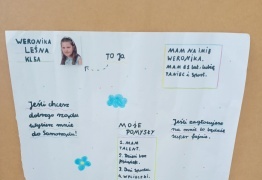 WERONIKA
LEŚNA
KL5A
TO JA
MAM NA IMIĘ
WERONIKA.
MAM
lat. Lubię
TANIEC i sport.
Jeśli chcesz
dobrego rządu
wybierz mnie
do Samorządu!
MOJE
POMYSŁY
1. MAM
TALENT.
2. Dzień bez
3. Dni
Jeśli zagłosujesz
na mnie to będzie
super fajnie.